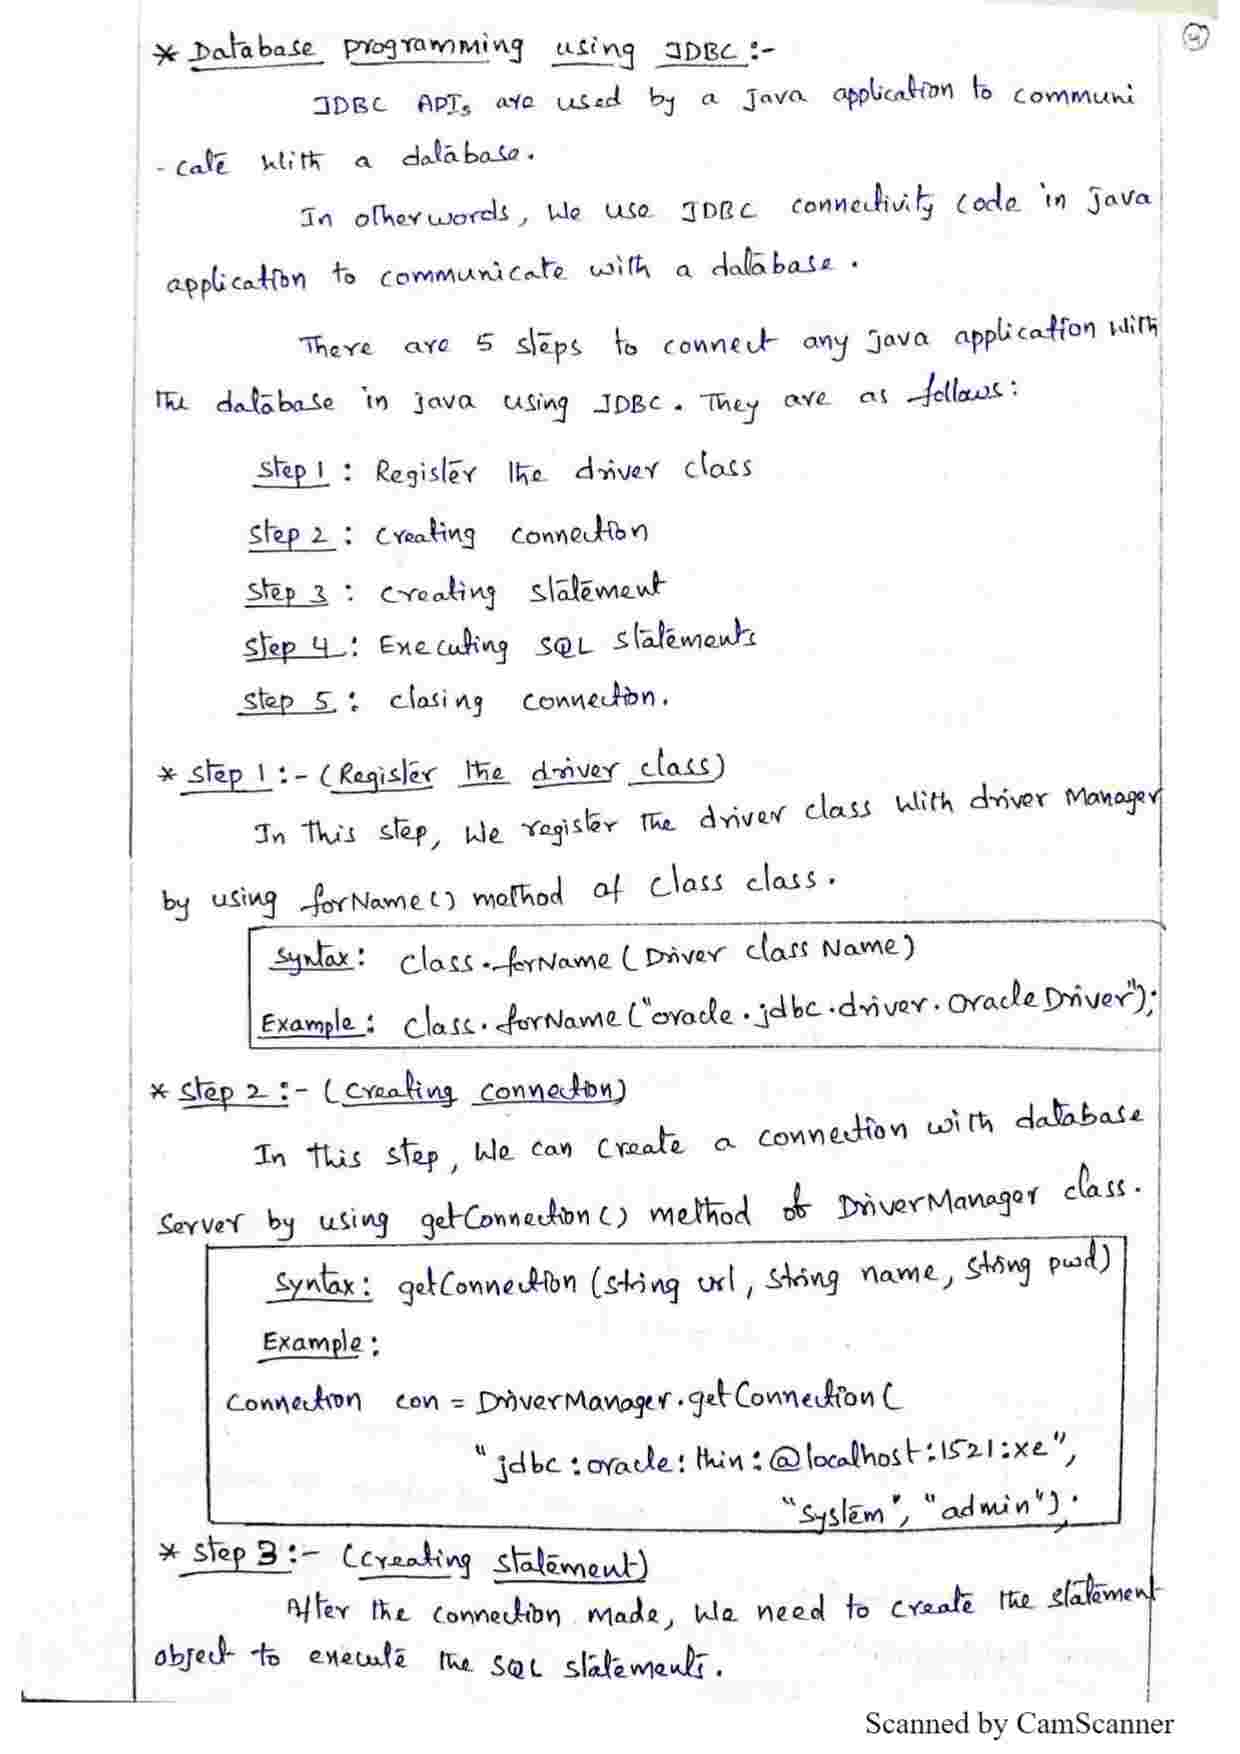 4
* Database programming using JDBC :-
JDBC APIs are used by a Java application to communi
- cate with a database.
In otherwords, we use JDBC connectivity code in java
application to communicate with a database.
There are 5 steps to connect any java application with
the database in java using JDBC. They are as follows:
Step 1 : Register the driver class
Step 2 : Creating connection
Step 3 : Creating statement
Step 4 : Executing SQL statements
Step 5 : Closing connection.
* Step 1 :- (Register the driver class)
In this step, we register the driver class with driver Manager
by using forName() method of class class.
Syntax: class.forName (Driver class Name)
Example: class.forName ("oracle.jdbc.driver.OracleDriver");
* Step 2 :- (Creating connection)
In this step, we can create a connection with database
server by using getConnection() method of DriverManager class.
Syntax: getConnection (string url, string name, string pwd)
Example:
Connection con = DriverManager.getConnection(
"jdbc:oracle:thin:@localhost:1521:xe",
"system", "admin");
* Step 3 :- (Creating statement)
After the connection made, we need to create the statement
object to execute the SQL statements.
Scanned by CamScanner